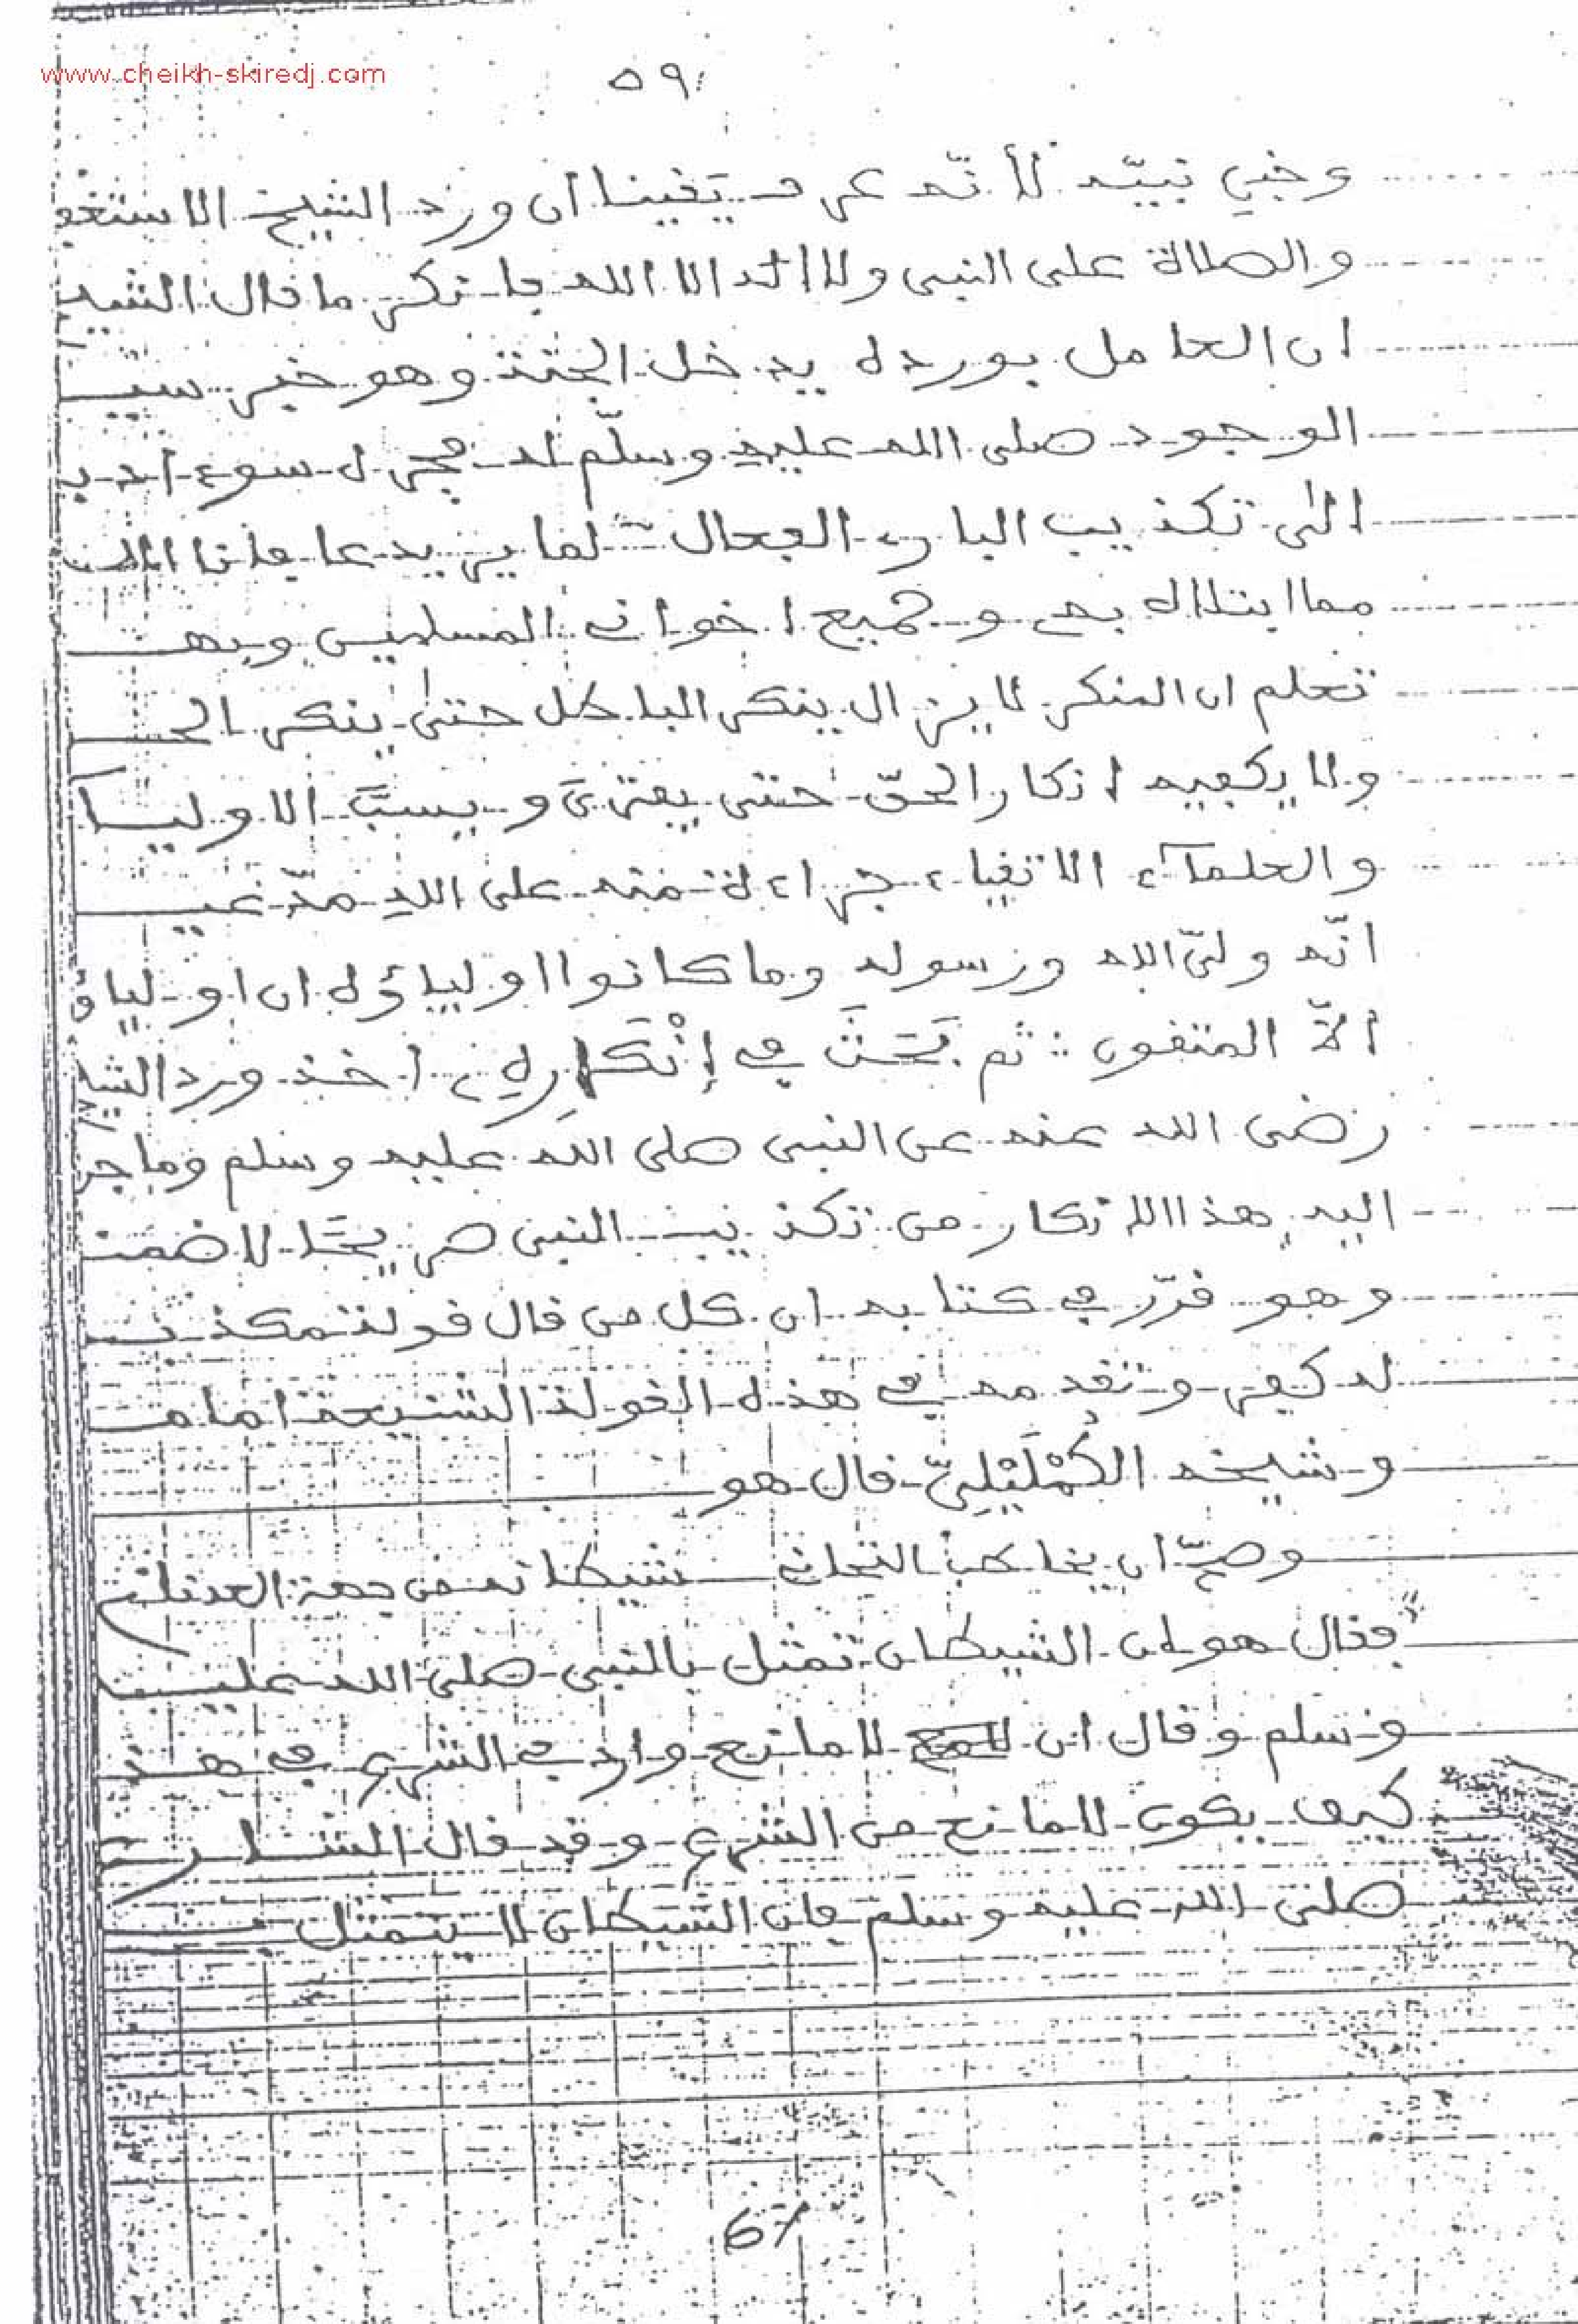 www.cheikh-skiredj.com
٥٩
وخبي نبيّه لأنّه عرف يقينا ان ورد الشيخ الاستغف
والصلاة على النبى ولا اله الا الله فانكر ما قال الشيـ
ان العامل بورده يدخل الجنة وهو خبر سيـ
الوجود صلى الله عليه وسلّم له فجره سوء ادبـ
الى تكذيب البارى الفعال لما يريد عافانا اللـ
مما ابتلاه به وجميع اخوانى المسلمين وبهـ
تعلم ان المنكر لا يزال ينكر الباطل حتى ينكر الحـ
ولا يكفيه انكار الحقّ حتى يفترى ويسبّ الاوليـا
والعلمآء الاتقياء جراءة منه على الله مدّعيـ
انّه ولىّ الله ورسوله وما كانوا اولياءه ان اولياؤه
الاّ المتقون ثم بَحَثَ فى إِنْكَارِهِ اخذ ورد الشيـ
رضى الله عنه عن النبى صلى الله عليه وسلم وما جر
اليه هذا الانكار من تكذيب النبى صريحًا لا ضمنـ
وهو قرّر فى كتابه ان كل من قال قولة مكذبـ
له كفر وتقدمه فى هذه القولة الشنيعة امامـ
وشيخه الكُمْلَيْلِىّ قال هو
وصحّ ان يخاطب التجانى شيطانه من جهة العدنانى
فقال هو ان الشيطان تمثل بالنبى صلى الله عليـه
وسلم وقال ان لا مانع وارد فى الشرع فى هـذ
كيف يكون لا مانع من الشرع وقد قال الشـارع
صلى الله عليه وسلم فان الشيطان لا يتمثل بـ
67